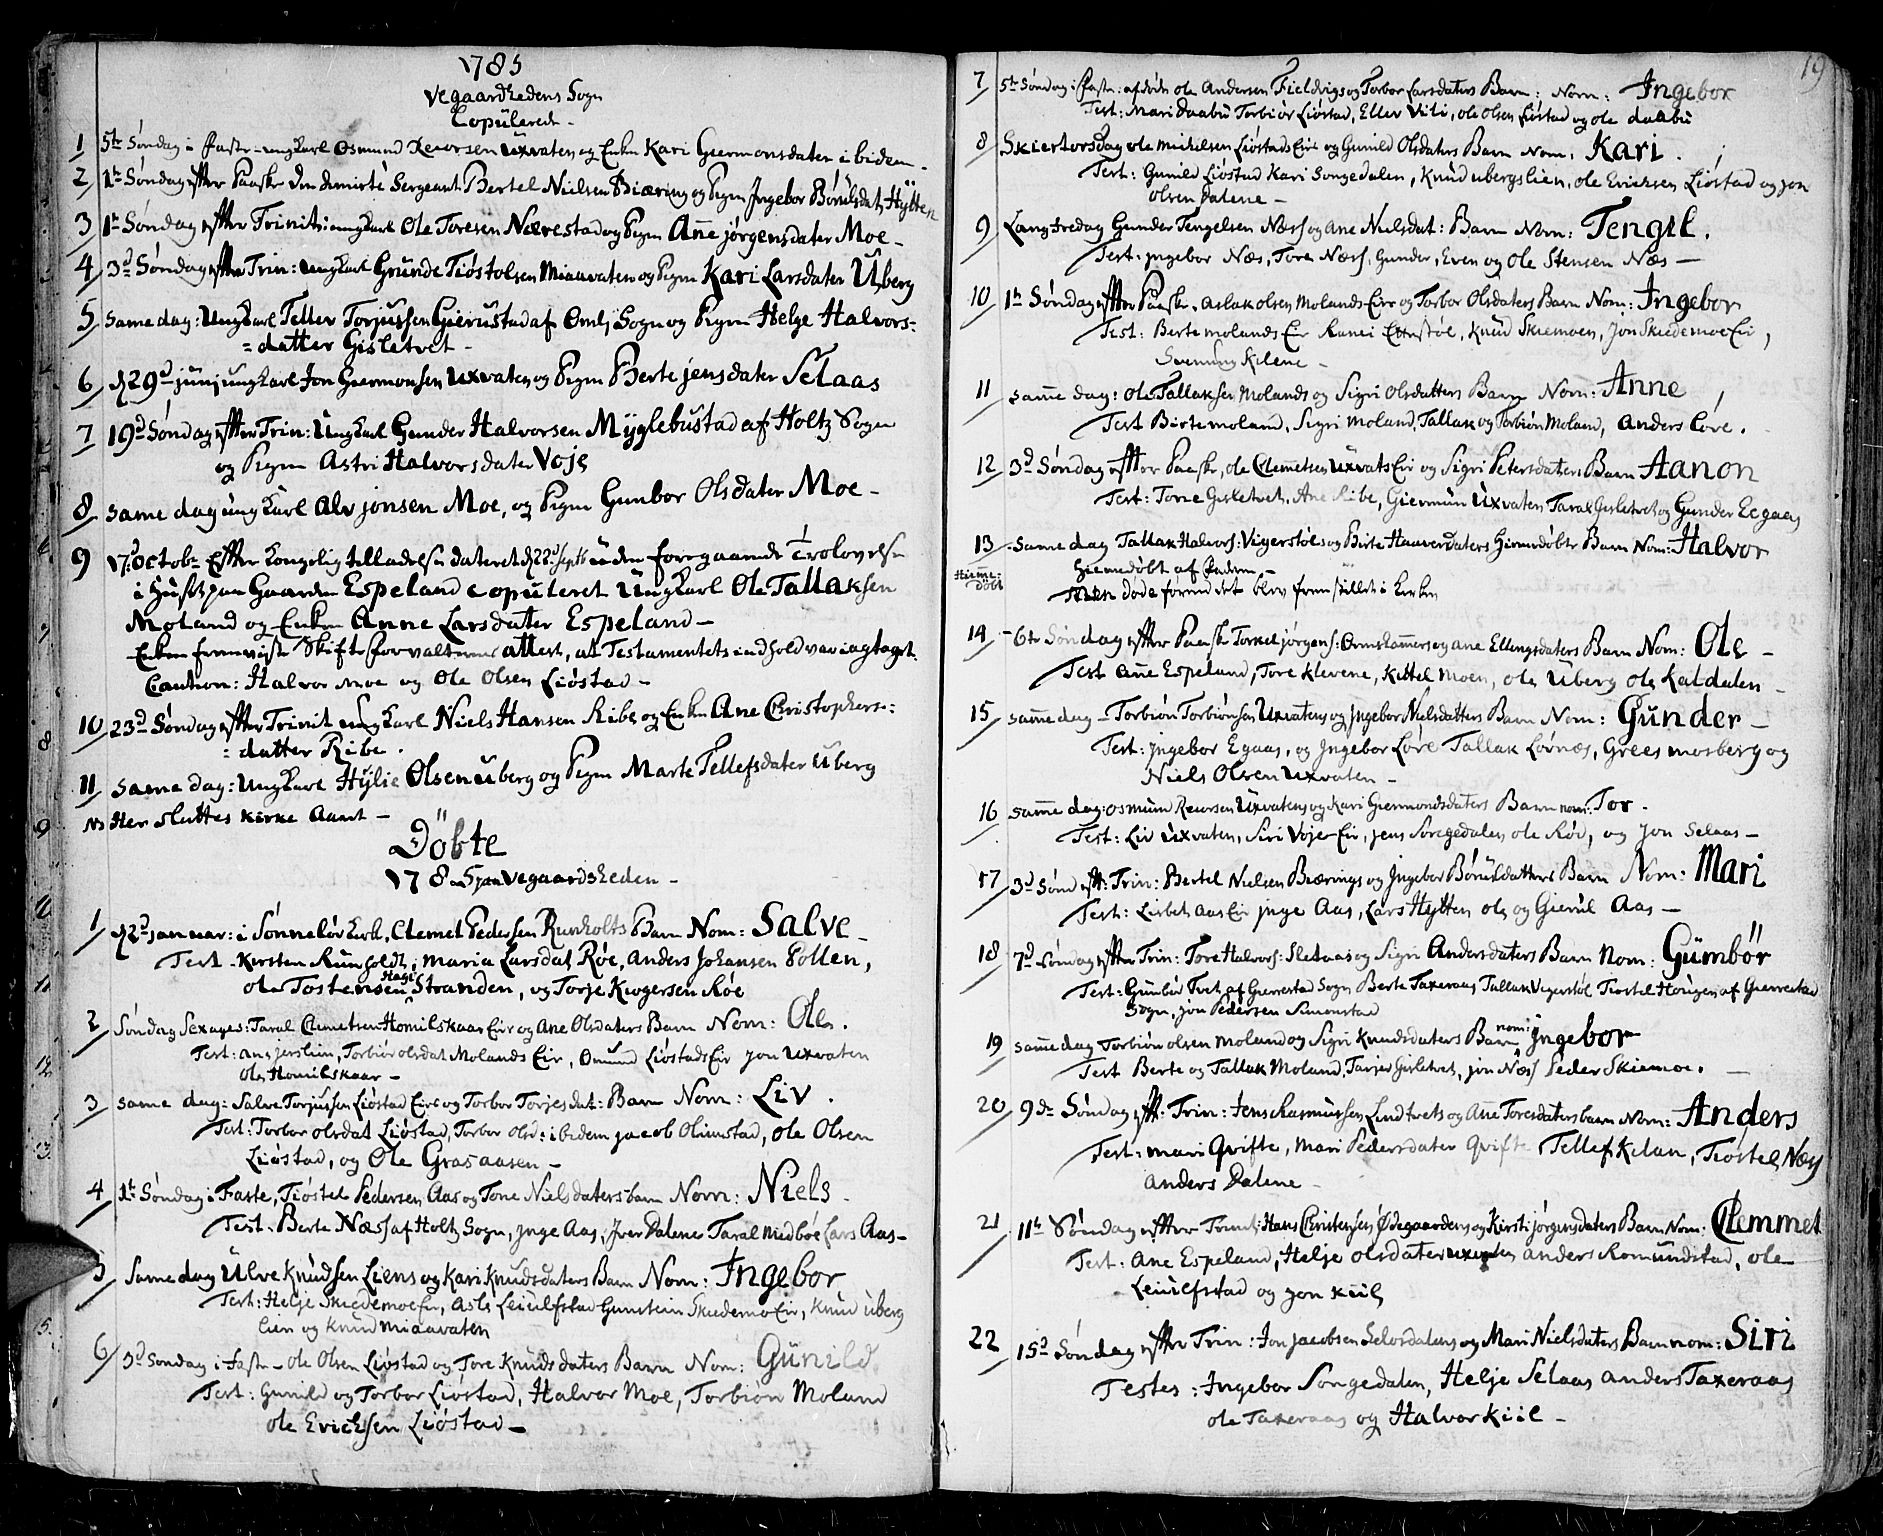 1785
Vegaardshedens Sogn
Copulered -
1 5te Søndag i Faste - ungkarl Osmund Reiersen Uxvaten og Enken Kari Giermonsdater ibidem
2 1te Søndag efter Paaske Den demitte Sergeant Bertel Nielsen Biæring og Pigen Ingebor Børulsdat, Hÿtten
3 1te Søndag efter Trinit: ungkarl Ole Toresen Nærestad og Pigen Anne jørgensdater Moe -
4 3d Søndag efter Trin: Ungkarl Grunde Tiøstolsen Miaavaten og Pigen Kari Larsdater Uberg
5 same dag: Ungkarl Tellev Torjussen Gierustad af Omli Sogn og Pigen Helge Halvors=
= datter Gisletvet -
6 d 29d junj ungkarl Jon Giermonsen Uxvaten og Pigen Berte jensdater Selaas
7 19d Søndag efter Trin: Ungkarl Gunder Halvorsen Mÿglebustad af Holtz Sogn
og Pigen Astri Halvorsdater Voje
8 same dag ungkarl Alv jonsen Moe, og Pigen Gunbor Olsdater Moe -
9 17d Octob: Efter kongelig tilladelse dateret d 22d Septb uden foregaaende Trolovelse
i Huset paa Gaarden Espeland copuleret Ungkarl Ole Tallaksen
Moland og Enken Anne Larsdater Espeland -
Enken fremviste Skifteforvalterens attest, at Testamentets indhold var iagtaget.
Caution: Halvor Moe og Ole Olsen Liøstad -
10 23d Søndag efter Trinit ungkarl Niels Hansen Ribe og Enken Ane Christophers=:
= datter Ribe.
11 same dag: Ungkarl Hÿlie Olsen Uberg og Pigen Marte Tellefsdater Uberg
NB Her sluttes Kirke Aaret -
Döbte
1785 paa Vegaardsheden -
1 d 2d januar: i Sønneløv kirk, Clemet Pedersen Runholts Barn Nom: Salve -
Test - Kirsten Runholdt, Maria Larsdat Røe, Anders Johansen Potten,
ole Tostensen Hage Stranden, og Torje Kiogersen Røe
2 Søndag Sexages: Taral Clemetsen Homilskaar Eie og Ane Olsdaters Barn Nom: Ole.
Test: Ane jerslien, Torbiør olsdat Molands Eie, Omund Liøstads Eie jon Uxvaten
ole Homilskaar -
3 same dag: Salve Torjussen Liøstad Eie og Torbor Torjesdat: Barn Nom: Liv.
Test: Torbor olsdat Liøstad, Torbor olsd: ibidem jacob Olimstad, ole Olsen
Liøstad, og Ole Grasaasen -
4 1te Søndag i Faste, Tiøstel Pedersen Aas og Tone Nielsdaters barn Nom: Niels -
Test - Berte Næss af Holtz Sogn, Jnge Aas, Iver Dalene Taral Midbøe Lars Aas -
5 Same dag Ulve Knudsen Liens og Kari Knudsdaters Barn Nom: Ingebor
Test: Helje Skiedemoe Eie, Asle Leiulfstad Gunstein Skiedemo Eie, Knud uberg
lien og Knud miaavaten
6 3d søndag i Faste - ole Olsen Liøstad og Tore Knudsdaters Barn Nom: Günild
Test: Gunild og Torbor Liøstad, Halvor Moe, Torbiøn Moland
ole Erichsen Liøstad -
19
7 5te Søndag i Faste: afdøde ole Andersen Fieldvigs og Torbor Larsdaters Barn: Nom: Ingebor
Test: Mari Daabu Torbiør Liøstad, Ellev Vili, ole olsen Liøstad og ole daabu
8 Skiertorsdag ole michelsen Liøstads Eie og Gunild Olsdaters Barn Nom: Kari.
Test: Gunild Liøstad Kari Songedalen, Knud ubergslien, ole Erichsen Liøstad og jon
olsen Dalene -
9 Langfredag Gunder Tengelsen Næss og Ane Nielsdat: Barn Nom: Tengel.
Test: jngebor Næs, Tore Næss, Gunder, Even og ole Stensen Næs -
10 1te Søndag efter Paaske. Aslak olsen Molands Eie og Torbor Olsdaters Barn Nom: Ingebor
Test: Berte molands Eie Ranei Ormstøl, Knud Skiemoen, Jon Skiedemoe Eie,
Svenning Kilene -
11 same dag: Ole Tallaksen Molands og Sigri Olsdatters Barn Nom: Anne
Test Birte moland, Sigri moland, Tallak og Torbiøn Moland, Anders Løve.
12 3d Søndag efter Paaske, ole Clemmetsen Uxvats Eie og Sigri Petersdaters Barn Aanon
Test: Tone Gisletvet, Ane Ribe, Giermun Uxvaten Taral Gisletvet og Gunder Eegaas
13 same dag Tallak Halvors: Vigerstøls og Birte Haaversdaters Hiemedøbte Barn Nom: Halvor
Hieme=
døbt
Hiemedøbt af Faderen -
Men døde førend det blev fremstillet i Kirken
14 - 6te Søndag efter Paaske Torkel jörgens: Ormskammers og ane Ellingsdaters Barn Nom: Ole -
Test Anne Espeland, Tore Klevene, Kittel Moen, ole Uberg ole Kaldalen -
15 samme dag - Torbiøn Torbiønsen Uxvatens og Jngebor Nielsdatters Barn Nom: Günder -
Test: jngebor Egaas, og Jngebor Løve Tallak Lovnæs, Grees mosberg og
Niels Olsen Uxvaten -
16 samme dag: Osmund Reiersen Uxvatens og Kari Giermondsdaters Barn nom: Tor.
Test: Liv Uxvaten, Siri Voje Eie, jens Songedalen ole Röd, og Jon Selaas -
17 3d Sønd eft: Trin: Bertel Nielsen Biærings og Ingebor Börulsdatters Barn Nom: Mari
Test: Lisbet Aas Eie jnge Aas, Lars Hÿtten ole og Gierul Aas -
18 7d Søndag efter Trin: Tore Halvors: Sletaas og Sigri Andersdaters Barn Nom: Gümbör
Test: Gunbör Tvet af Gierrestad Sogn Berte Taxeraas Tallak Vegerstøl Tiostel Hougen af Gierrestad
Sogn, jon Pedersen Simonstad
19 samme dag Torbiøn olsen moland og Sigri Knudsdaters Barn nom: jngebor
Test Berte og Tallak Moland, Tarjer Gisletvet, jon Næss Peder Skiemoe.
20 9de Søndag eft. Trin: Jens Rasmussen Lindtvets og Anne Toresdaters barn Nom: Anders
Test: mari Qvifte, Mari Pedersdater Qvifte Tellef Kilan, Tiøstel Næss
Anders Dalene -
21 11te Søndag efter Trinit: Hans Christensens Ødegaardens og Kirsti jörgensdaters Barn Nom: Clemmet
Test: Ane Espeland, Helje olsdater uxvaten anders Romundstad, ole
Leiulfstad og Jon Kiil
22 15d Søndag efter Trin: Jon jacobsen Selordalens og Mari Nielsdaters Barn nom: Siri
Testes: Ingebor Songedalen, Helje Selaas anders Taxeraas
ole Taxeraas og Halvor Kiil -